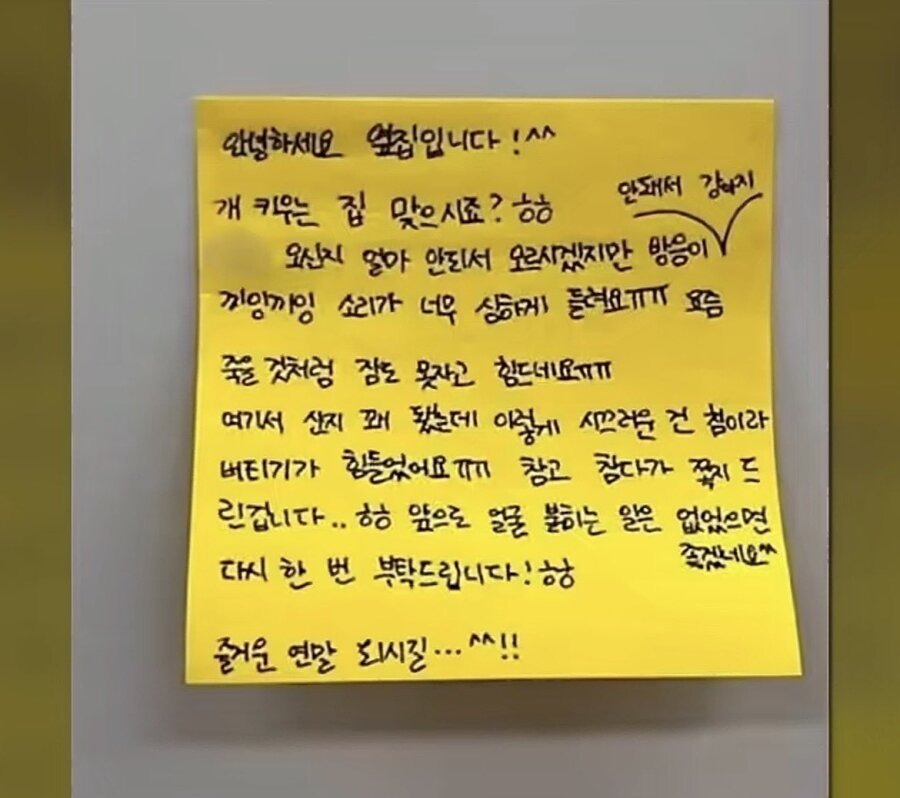 안녕하세요 옆집입니다!^^
개 키우는 집 맞으시죠? ㅎㅎ
안돼서 강아지
오신지 얼마 안되서 모르시겠지만 방음이
끼잉끼잉 소리가 너무 심하게 들려요ㅠㅠ 요즘
죽을 것처럼 잠도 못자고 힘드네요ㅠㅠ
여기서 산지 꽤 됐는데 이렇게 시끄러운 건 첨이라
버티기가 힘들었어요ㅠㅠ 참고 참다가 쪽지 드
린겁니다.. ㅎㅎ 앞으로 얼굴 붉히는 일은 없었으면
좋겠네요^^
다시 한 번 부탁드립니다! ㅎㅎ
즐거운 연말 되시길...^^!!